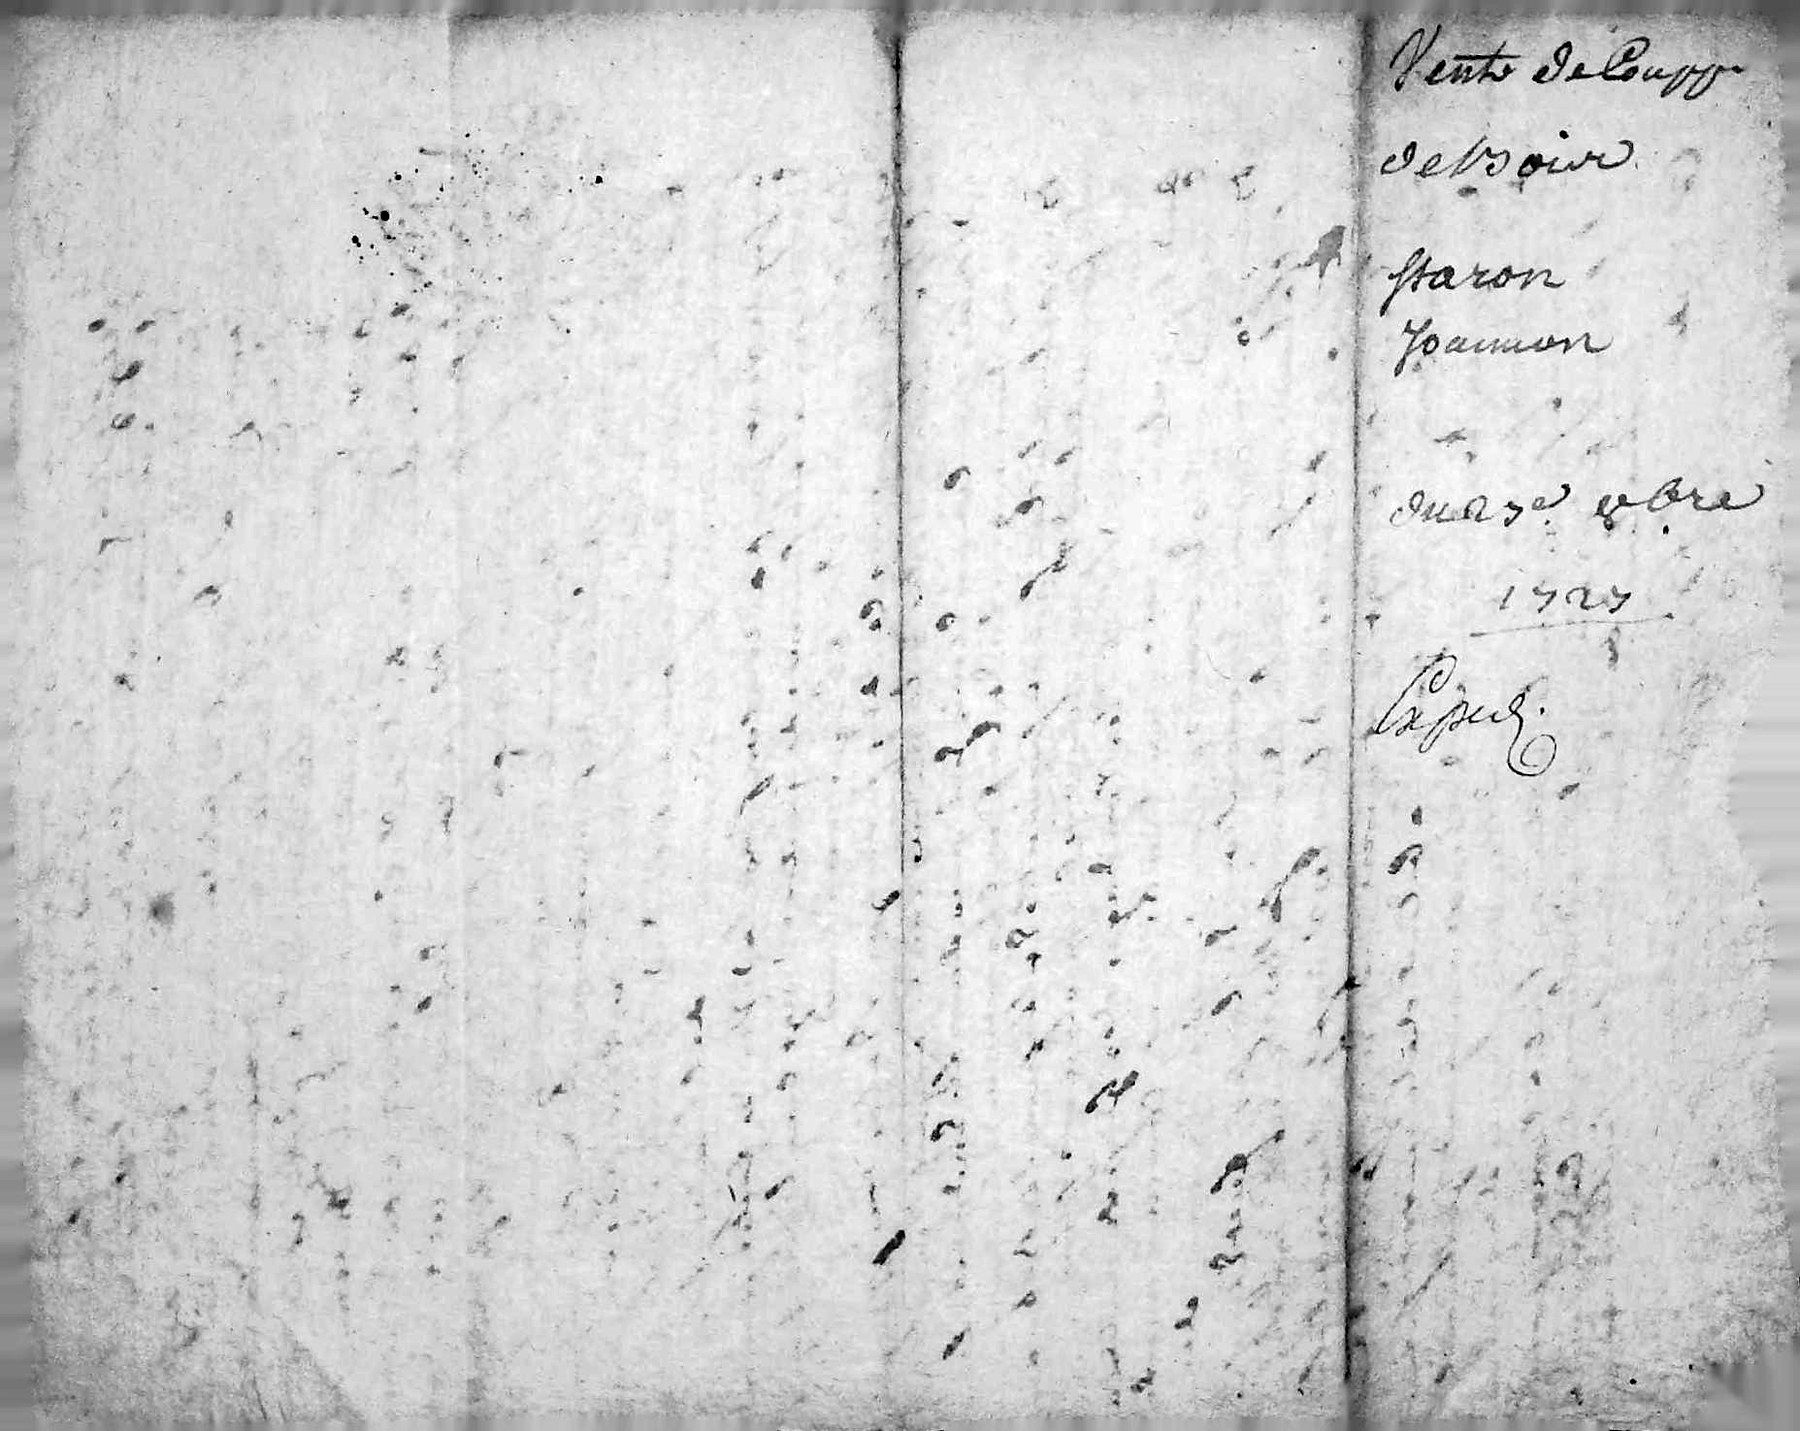 Vente de Coupp
de bois
Staron
Joannon
du 27e 9bre
1727
Exped.